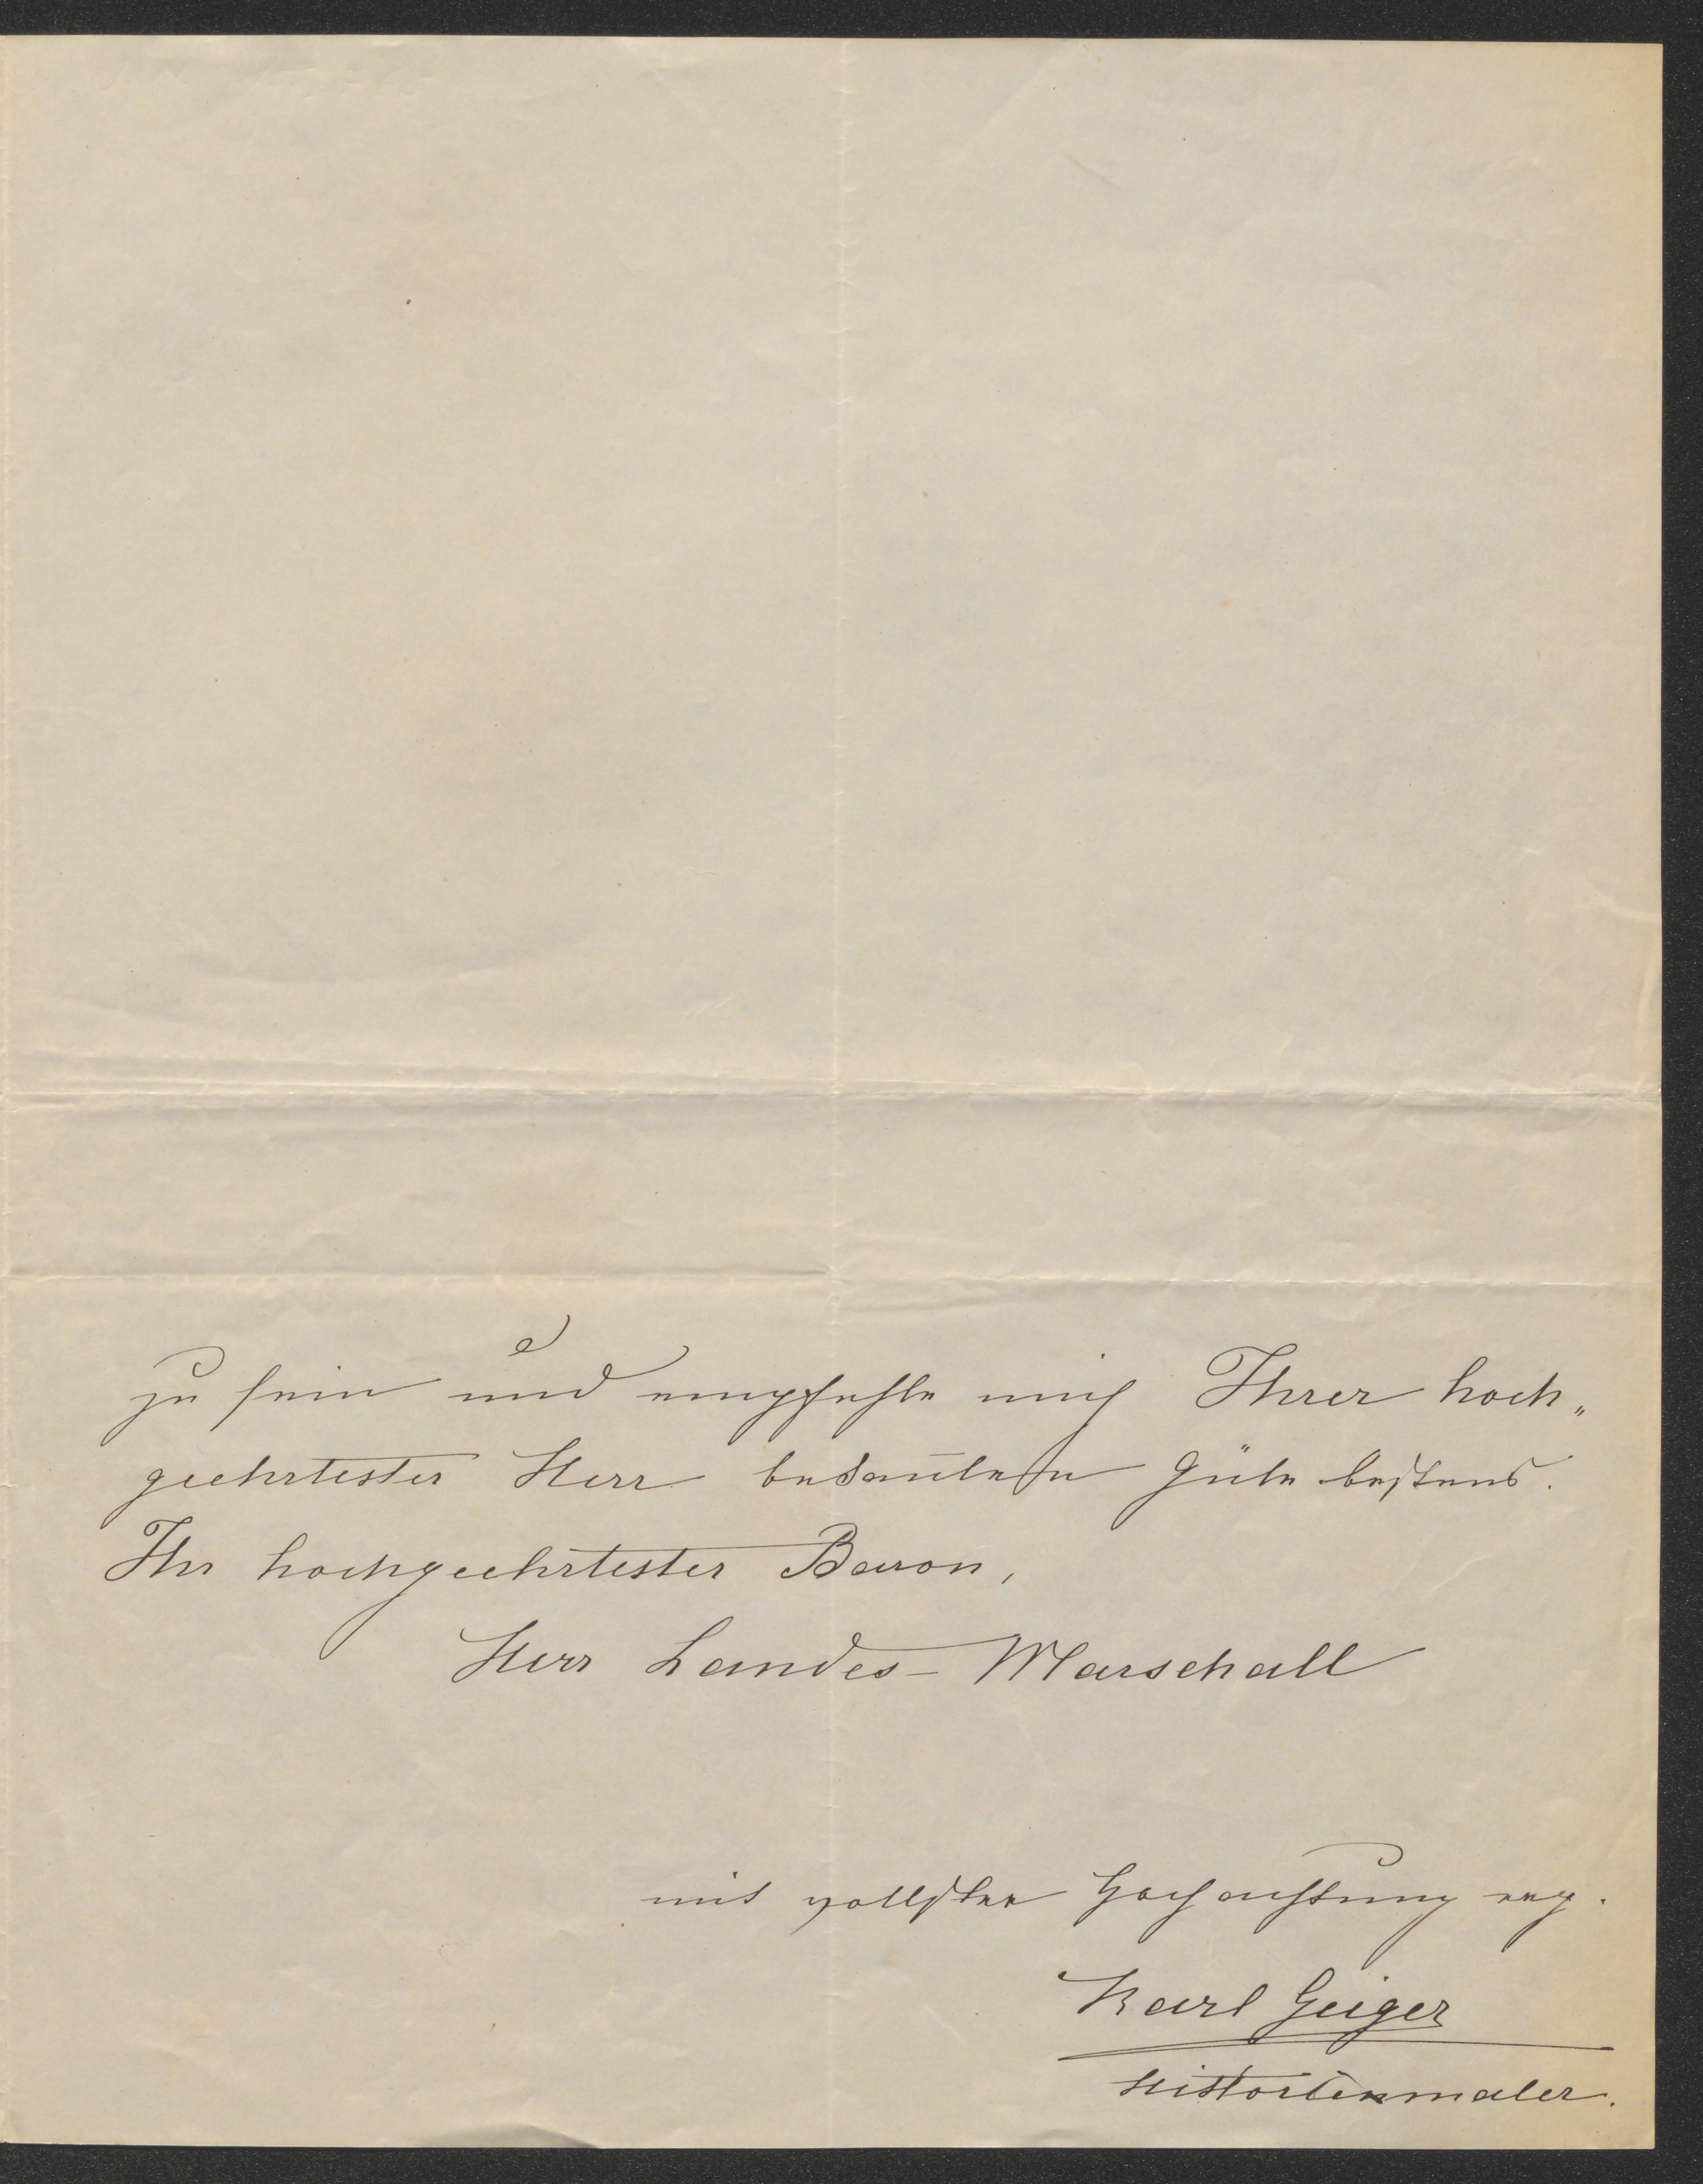 zu sein und empfehle mich Ihrer hoch„
geehrtester Herr bekannten Güte bestens.
Ihr hochgeehrtester Baron,
Herr Landes-Marschall
mit vollster Hochachtung erg.
Karl Geiger
Historienmaler.